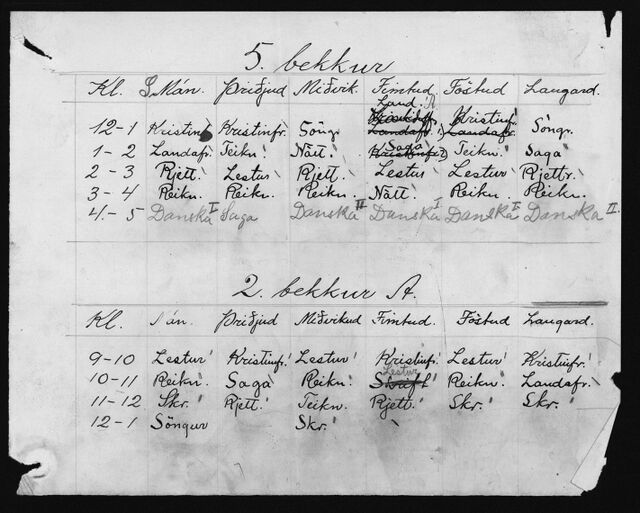 5. bekkur
Kl. Mán. Þriðjud Miðvik. Fimtud Föstud Laugard.
Land.
12-1 Kristin Kristinfr. Söngr Landafr. Kristinfr. Landafr. Söngr.
Saga
1-2 Landafr. Teikn. Nátt. Kristinfr. Teikn. Saga
2-3 Rjett. Lestur Rjett. Lestur Lestur Rjettr.
3-4 Reikn. Reikn. Reikn. Nátt. Reikn. Reikn.
4-5 Danska I Saga Danska II Danska I Danska I Danska II.
2. bekkur A.
Kl. Mán. Þriðjud Miðvikud Fimtud. Föstud Laugard.
9-10 Lestur Kristinfr. Lestur Kristinfr. Lestur Kristinfr.
Lestur
10-11 Reikn. Saga Reikn. Reikn. Landafr.
11-12 Skr. Rjett. Teikn. Rjett. Skr. Skr.
12-1 Söngur Skr.